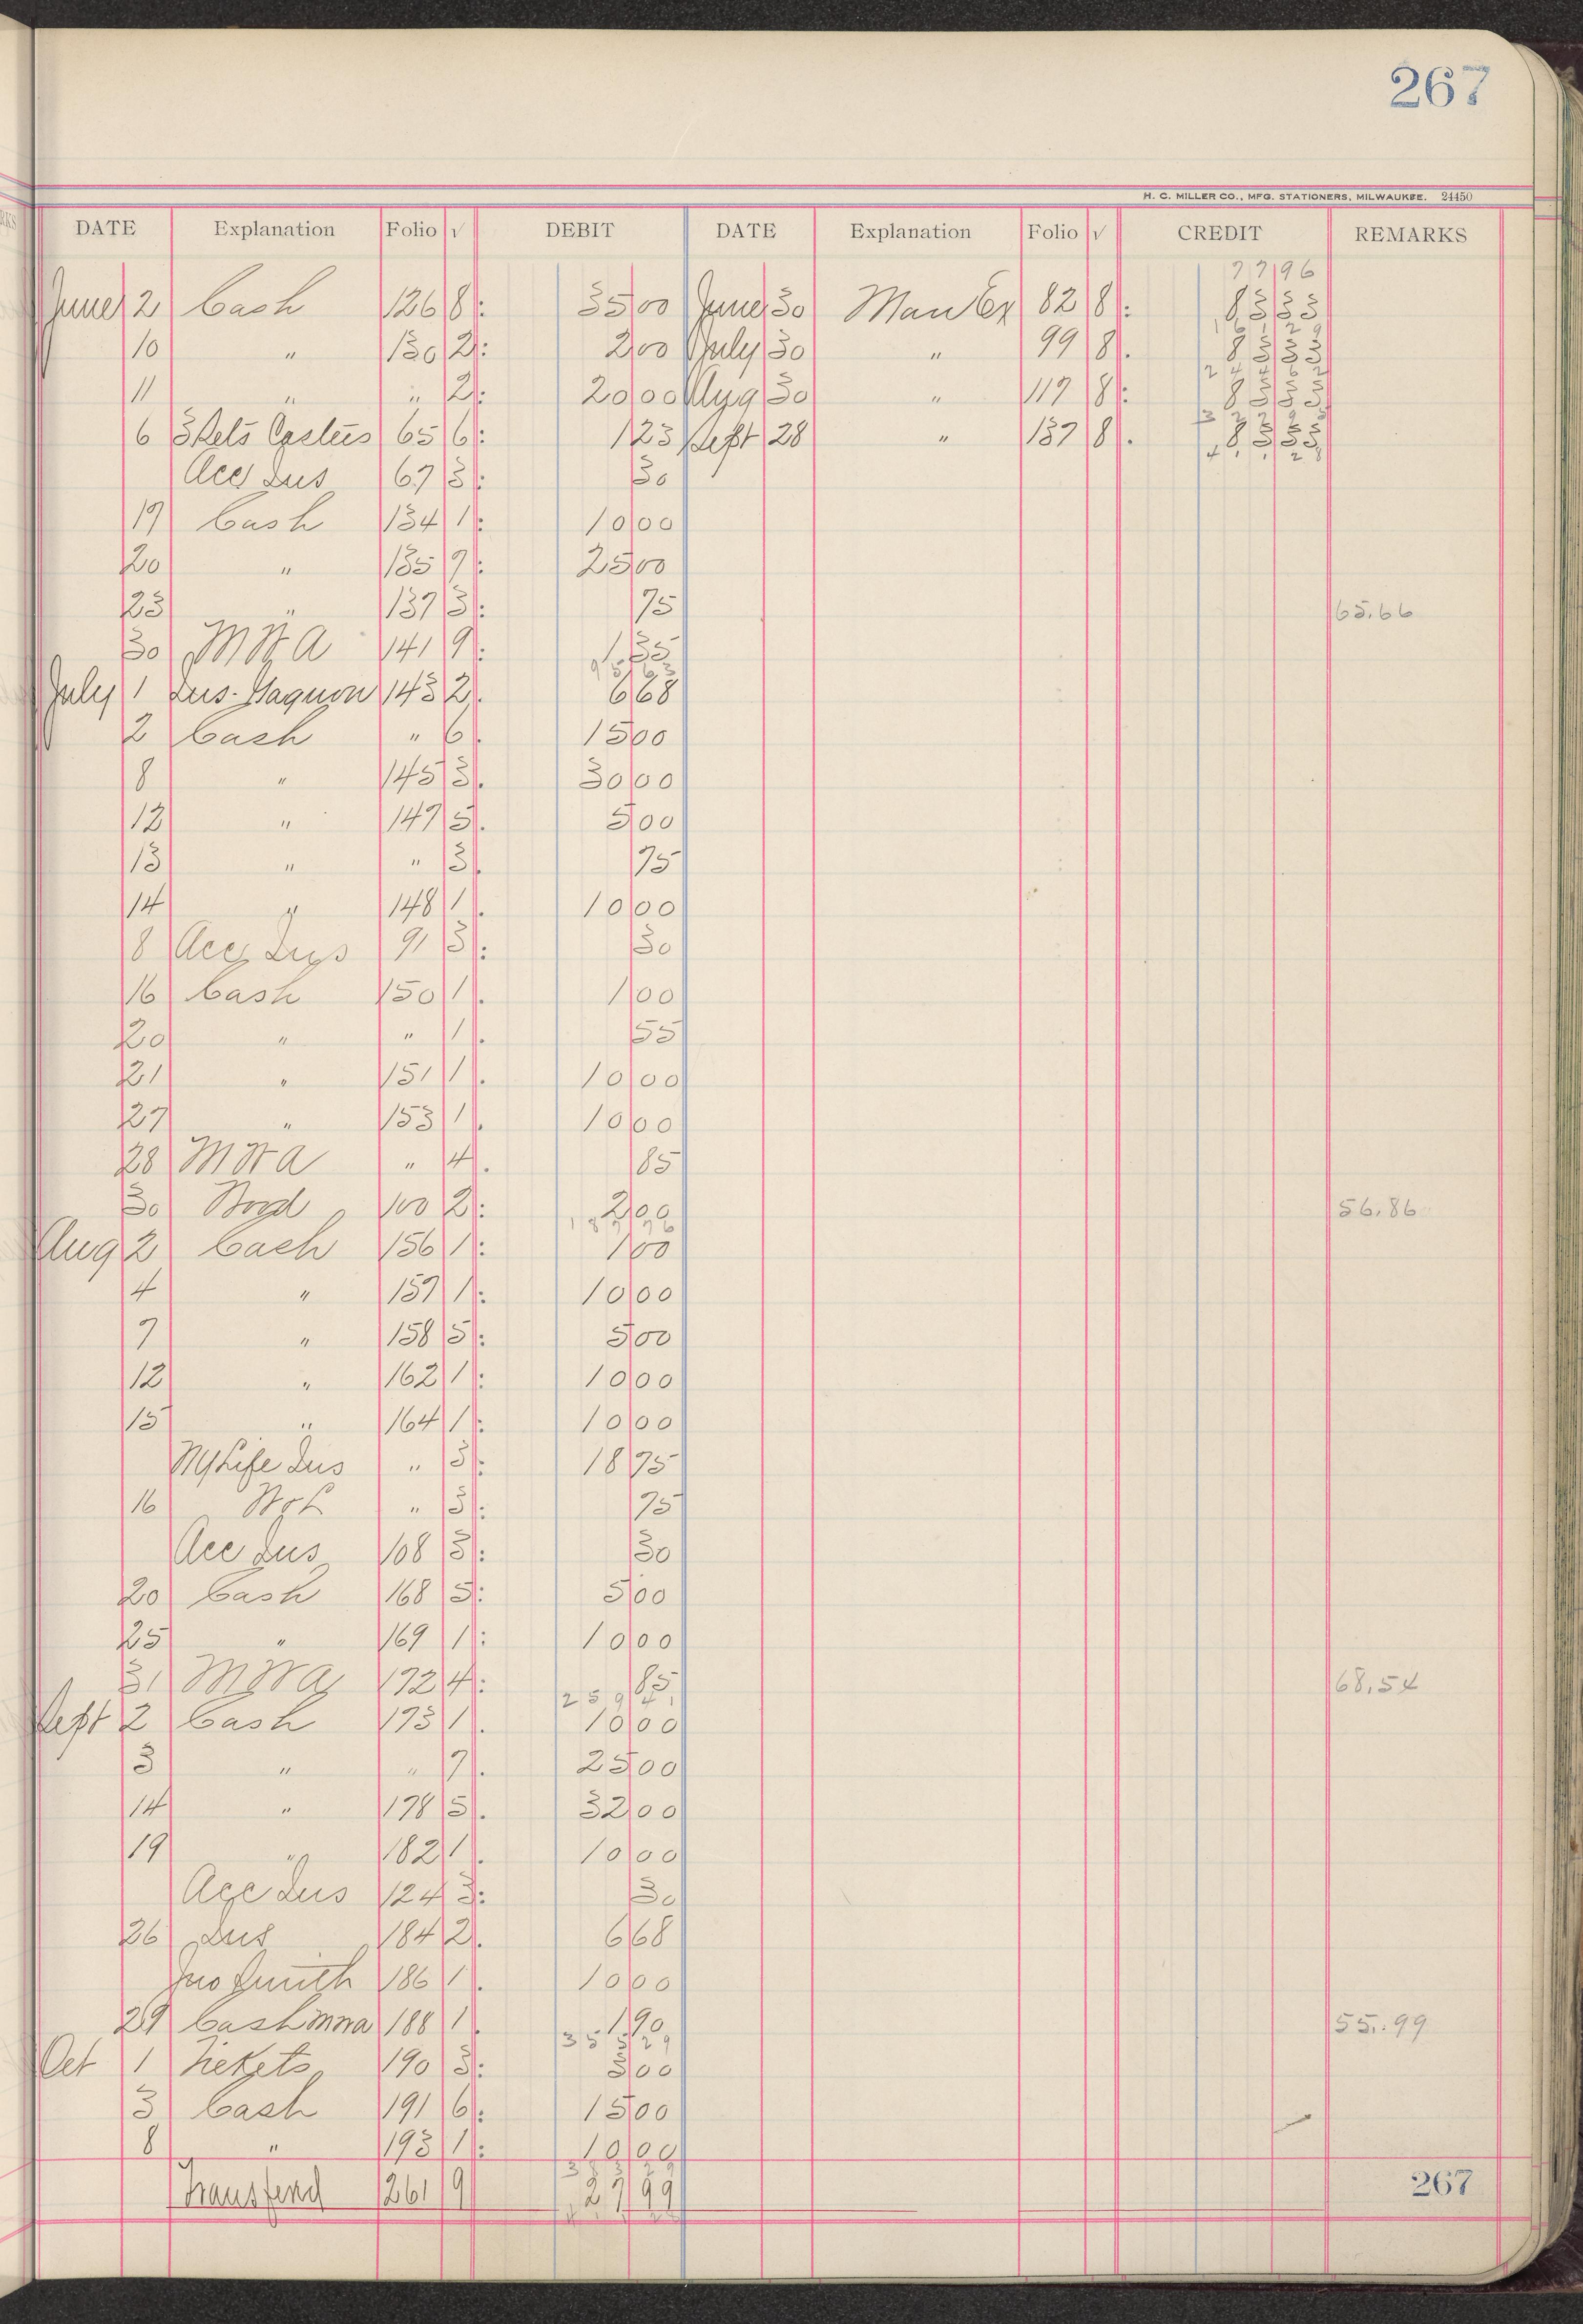 267
H. C. MILLER CO., MFG. STATIONERS, MILWAUKEE. 24450
DATE Explanation Folio √ DEBIT DATE Explanation Folio √ CREDIT REMARKS
77 96
June 2 Cash 126 8 35 00 June 30 Man Ex 82 8 83 33
10 " 130 2 2 00 July 30 " 99 8 83 33
11 " " 2 20 00 Aug 30 " 117 8 83 33
6 65 6 1 25 Sept 28 " 137 8 83 33
Acc Ins 67 3 30
17 Cash 134 1 10 00
20 " 135 7 25 00
23 " 137 3 75 65.66
30 141 9 1 35
July 1 Ins. 143 2 6 68
2 Cash " 6 15 00
8 " 145 3 30 00
12 " 147 5 5 00
13 " " 3 75
14 " 148 1 10 00
8 Acc Ins 91 3 30
16 Cash 150 1 1 00
20 " " 1 55
21 " 151 1 10 00
27 " 153 1 10 00
28 " 4 85
30 100 2 2 00 56.86
Aug 2 Cash 156 1 1 00
4 " 157 1 10 00
7 " 158 5 5 00
12 " 162 1 10 00
15 " 164 1 10 00
NY Life Ins " 3 18 75
16 " 3 75
Acc Ins 108 3 30
20 Cash 168 5 5 00
25 " 169 1 10 00
31 172 4 85 68.54
Sept 2 Cash 173 1 10 00
3 " " 7 25 00
14 " 178 5 32 00
19 " 182 1 10 00
Acc Ins 124 3 30
26 Ins 184 2 6 68
Jno Smith 186 1 10 00
29 Cash 188 1 1 90 55.99
Oct 1 Tickets 190 3 3 00
3 Cash 191 6 15 00
8 " 193 1 10 00
Transferd 261 9 27 99
267